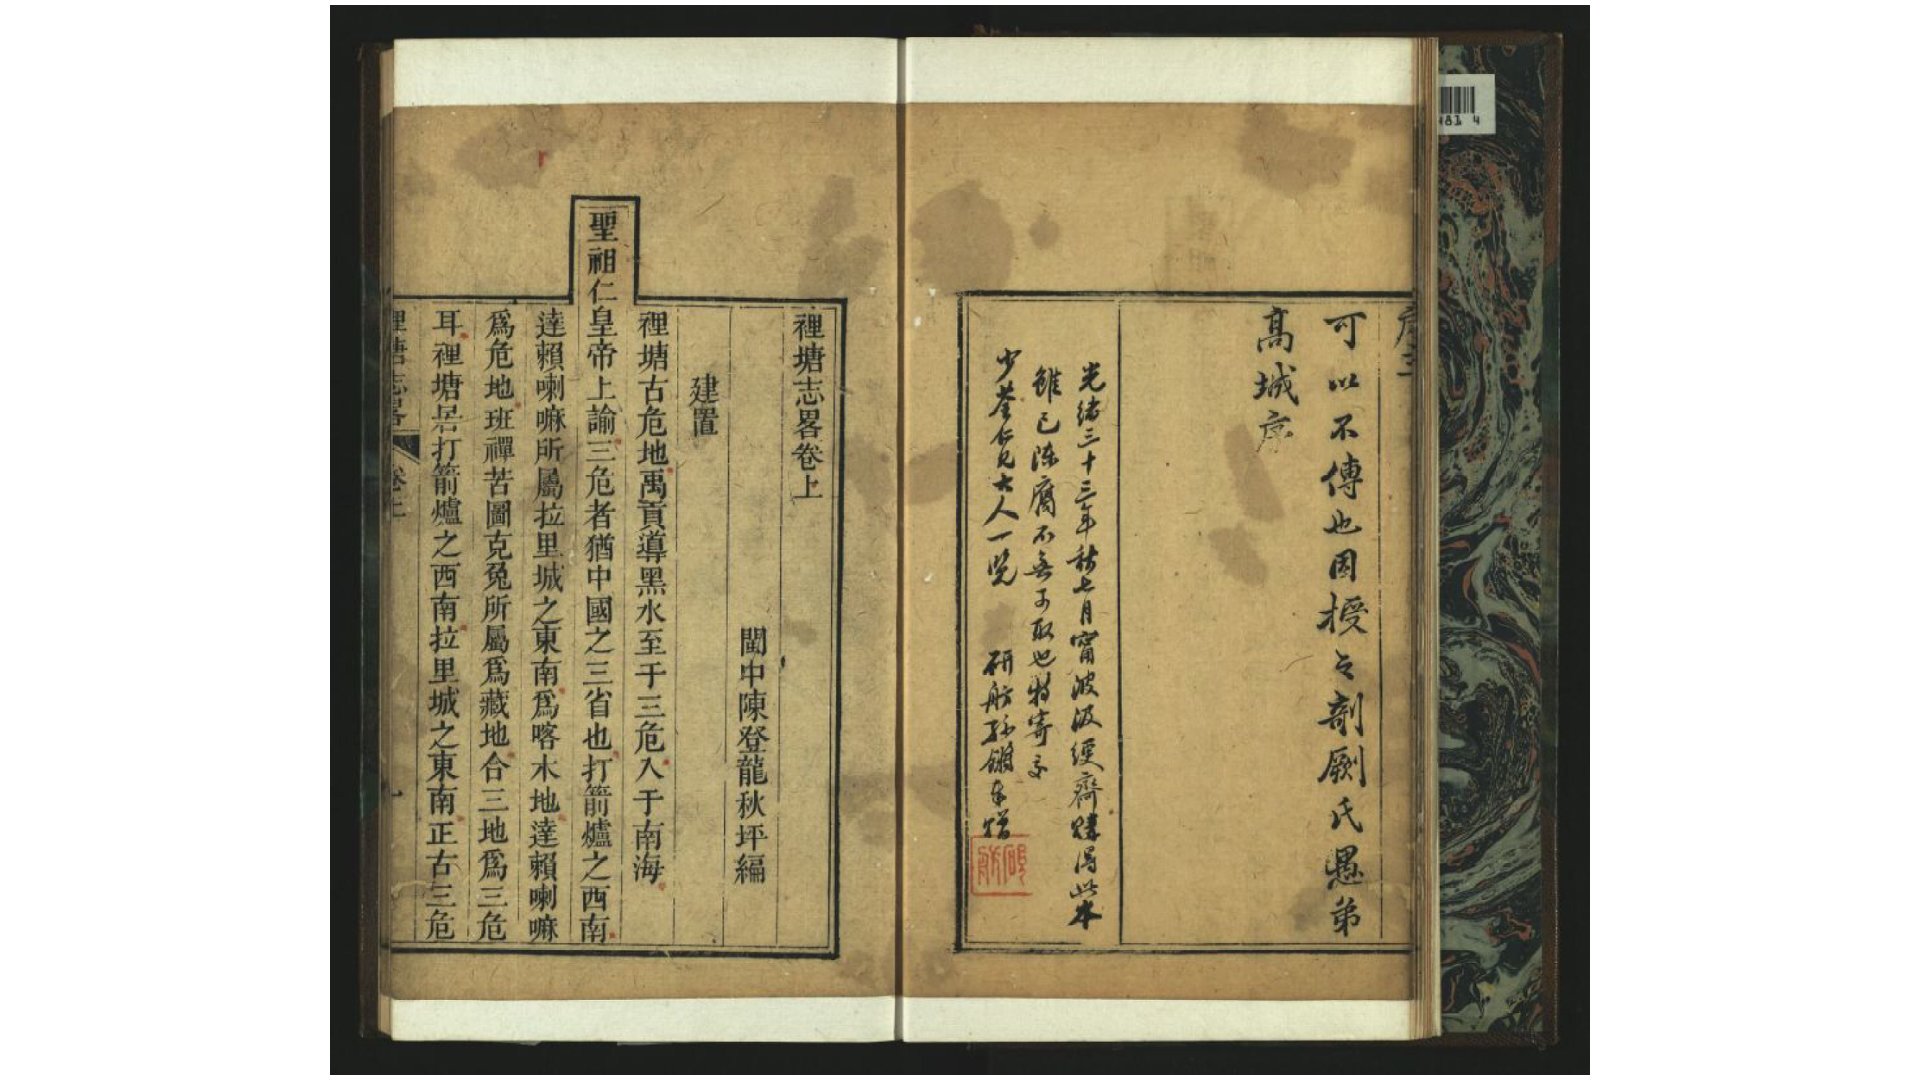 可以不傳也因授之剞劂氏愚弟
高城序
光緒三十三年秋七月甯波汲綆齋購得此本
雖已陳腐不無可取也特寄交
少荃仁兄大人一览
研舫孫鏘奉贈
裡塘志畧卷上
閩中陳登龍秋坪編
建置
裡塘古危地禹貢導黑水至于三危入于南海
聖祖仁皇帝上諭三危者猶中國之三省也打箭爐之西南
達賴喇嘛所屬拉里城之東南爲喀木地達賴喇嘛
爲危地班禪苦圖克兔所屬爲藏地合三地爲三危
耳裡塘居打箭爐之西南拉里城之東南正古三危
裡塘志畧 卷上